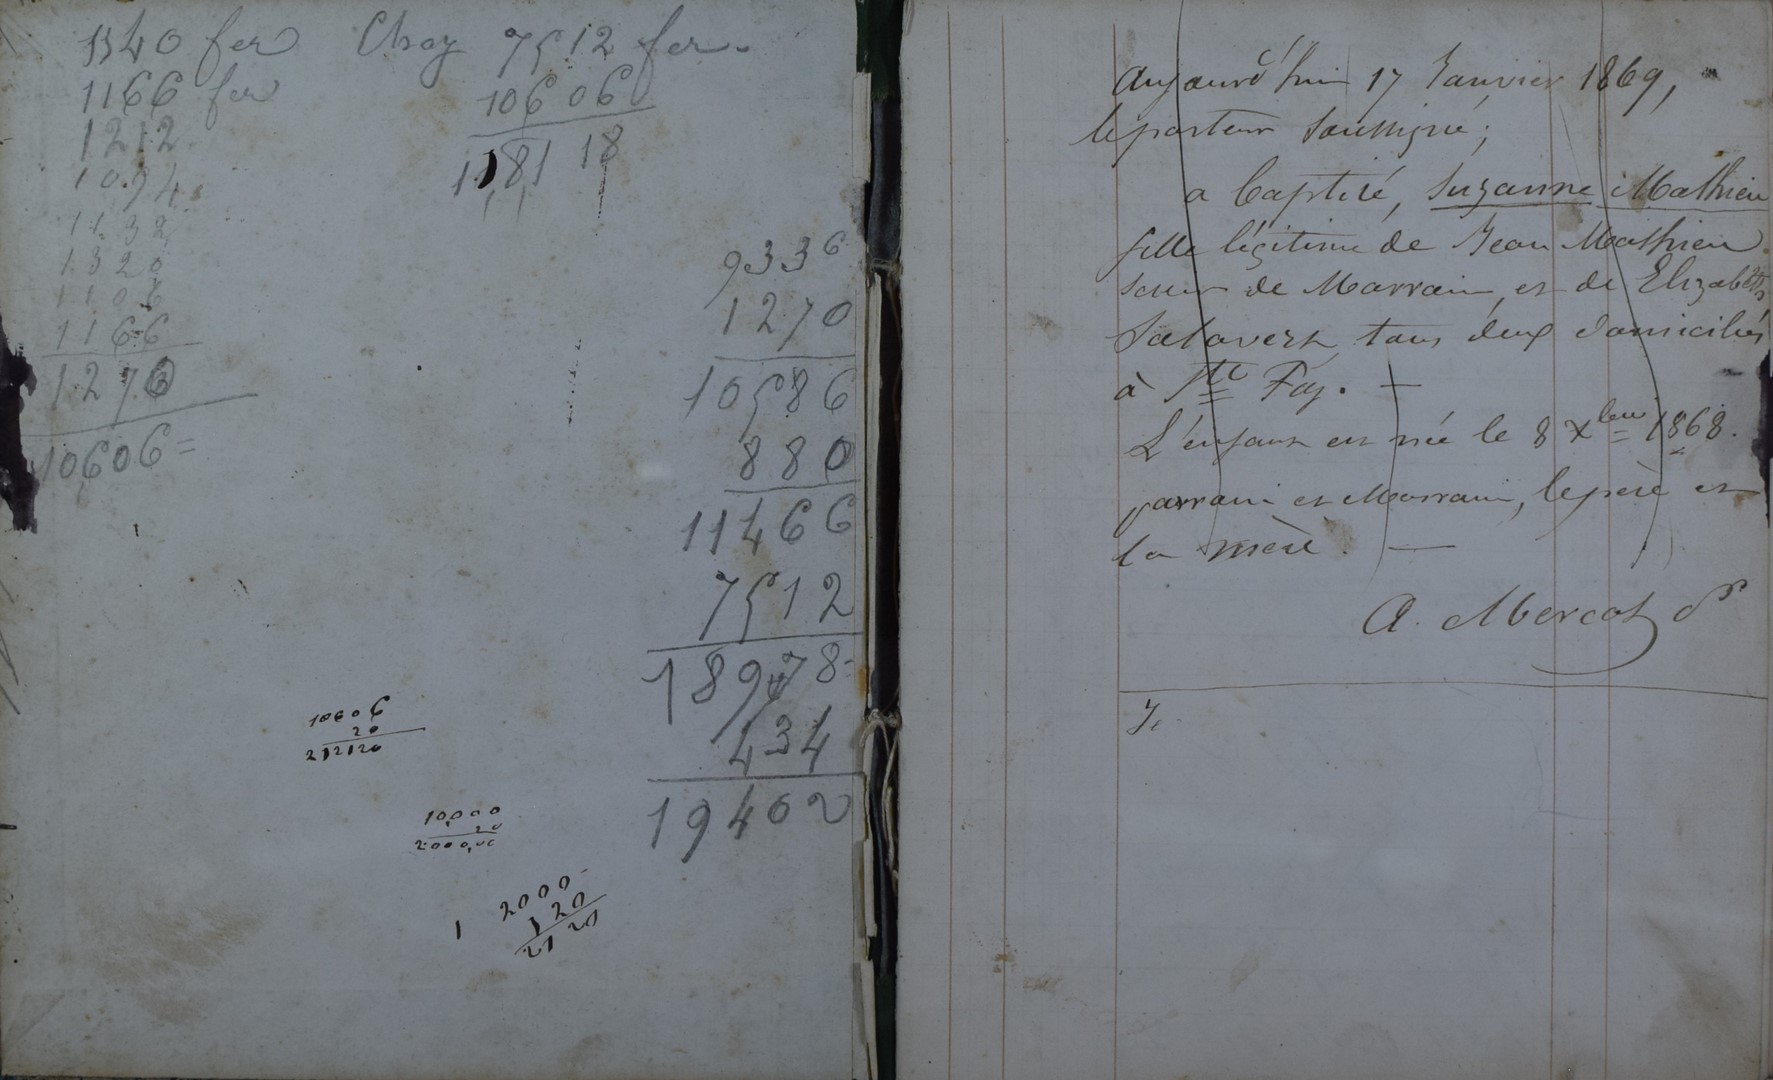 1340 fer
1166 fer
1212
1094
1132
1320
1106
1166
1270
10,606=
Chay 7512 fer.
10606
118,1 18
9336
1270
10586
880
11466
7512
18978
434
19402
10606
20
212120
10,000
20
2000,00
1
2000
120
2120
Aujourd'hui 17 Janvier 1869,
le pasteur soussigné;
a baptisé, Suzanne Mathieu
fille légitime de Jean Mathieu
de Marrain, et de Elizabeth
Salavert tous deux domiciliés
à Ste Foy. —
L'enfant est née le 8 Xbre 1868.
parrain et Marraine, le père et
la mère. —
A. Mercat pr
Je